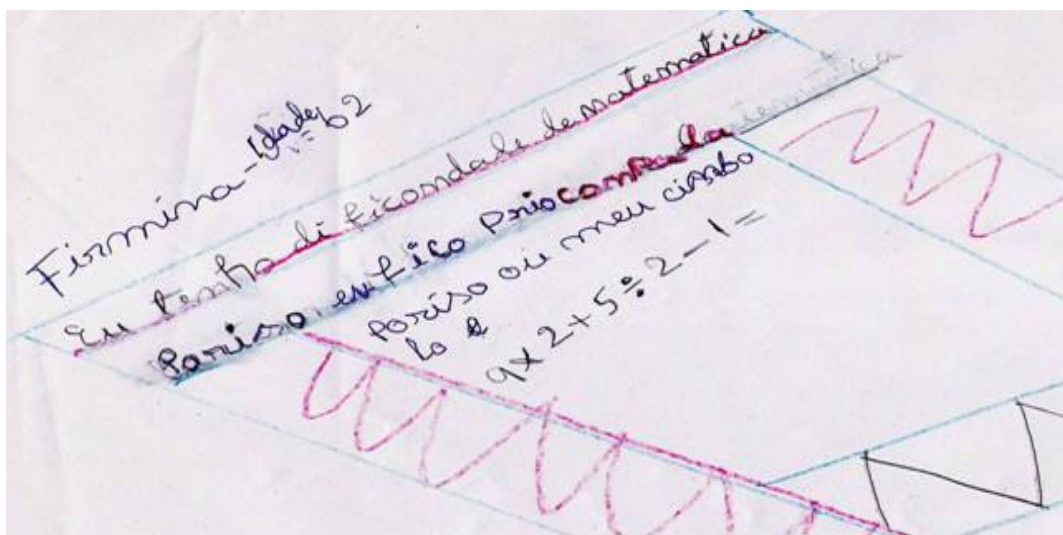 Firmina - Idade = 62
Eu tenho dificondade de matematica
Pariso eu fico priocompada
Pariso ou meu cimbo
lo é
9x2+5÷2-1=